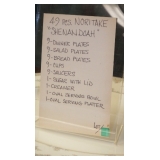 49 pcs. NORITAKE
"SHENANDOAH"
9-DINNER PLATES
9-SALAD PLATES
9-BREAD PLATES
9-CUPS
9-SAUCERS
1-SUGAR WITH LID
1-CREAMER
1-OVAL SERVING BOWL
1-OVAL SERVING PLATTER